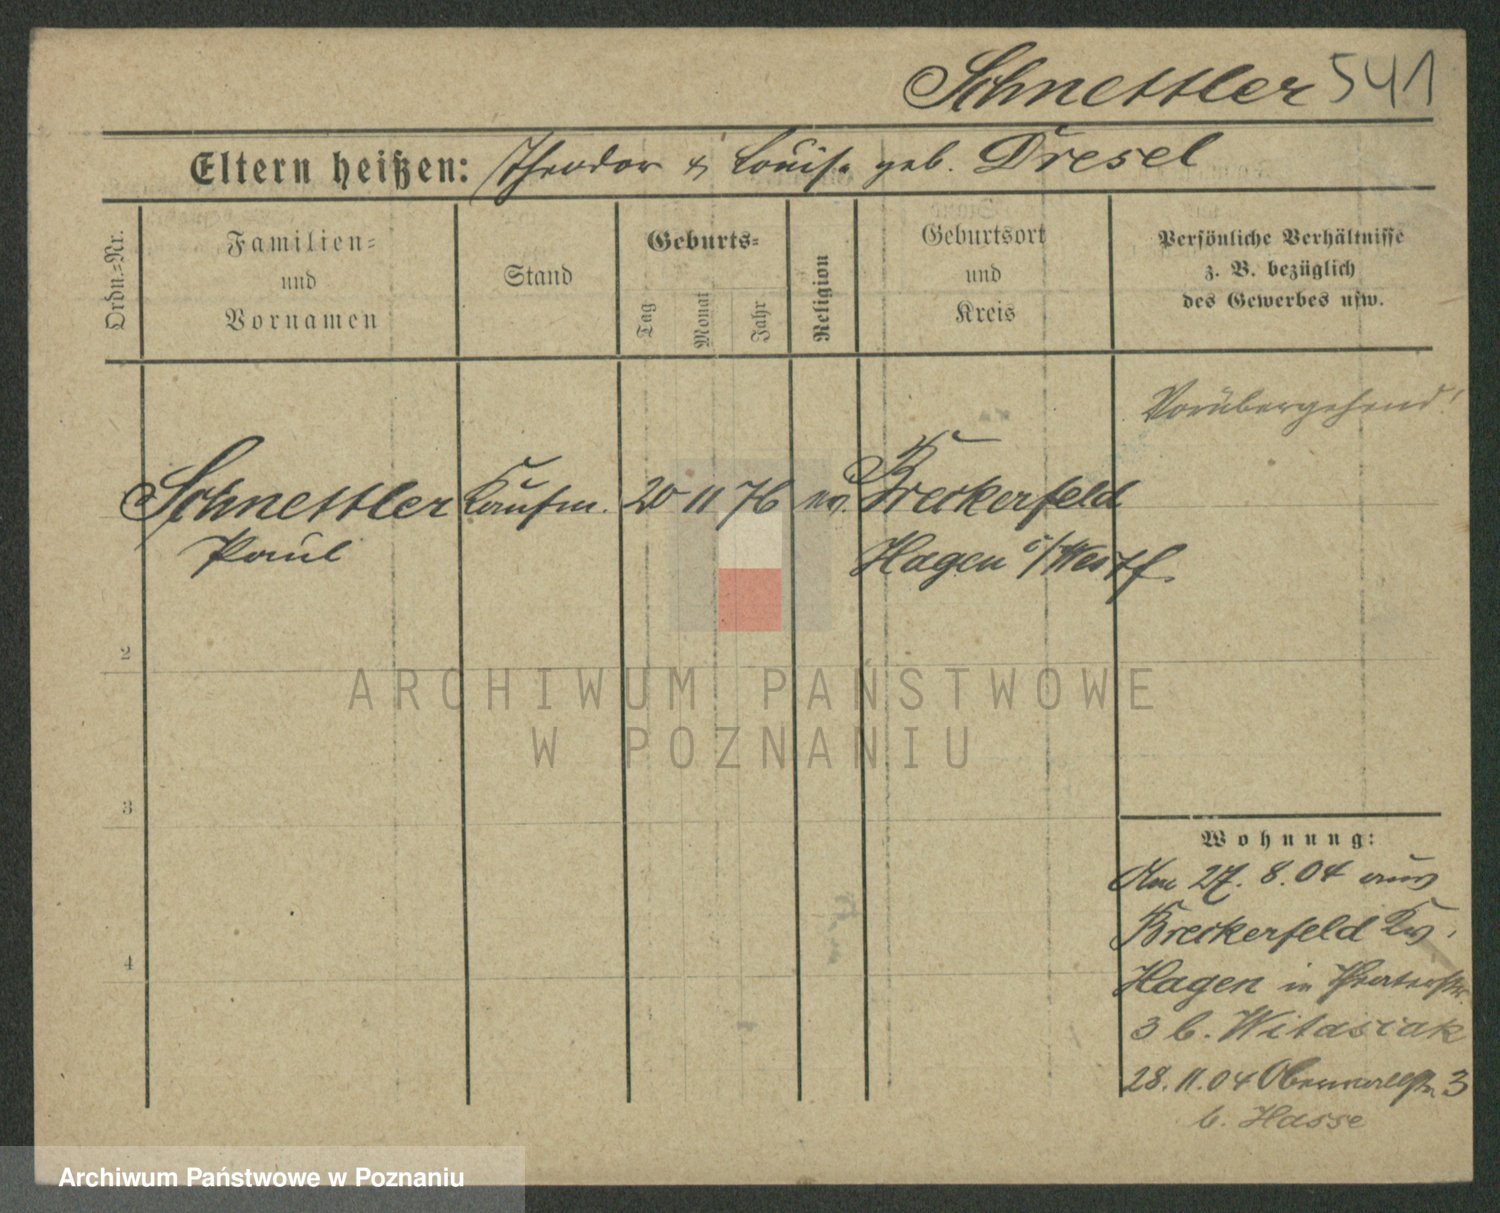 Schnettler 541
Eltern heißen: Theodor & Louise geb. Dresel
Ordn.=Nr.
Familien=
und
Vornamen
Stand
Geburts=
Tag
Monat
Jahr
Religion
Geburtsort
und
Kreis
Persönliche Verhältnisse
z. B. bezüglich
des Gewerbes usw.
Vorübergehend!
Schnettler Kaufm. 20 11 76 ev. Breckerfeld
Paul Hagen i/Westf.
2
3
4
Wohnung:
Am 27. 8. 04 aus
Breckerfeld Kr.
Hagen in Theaterstr.
3 b. Witasiak
28. 11. 04 Oberwallstr. 3
b. Hasse
ARCHIWUM PAŃSTWOWE
W POZNANIU
Archiwum Państwowe w Poznaniu